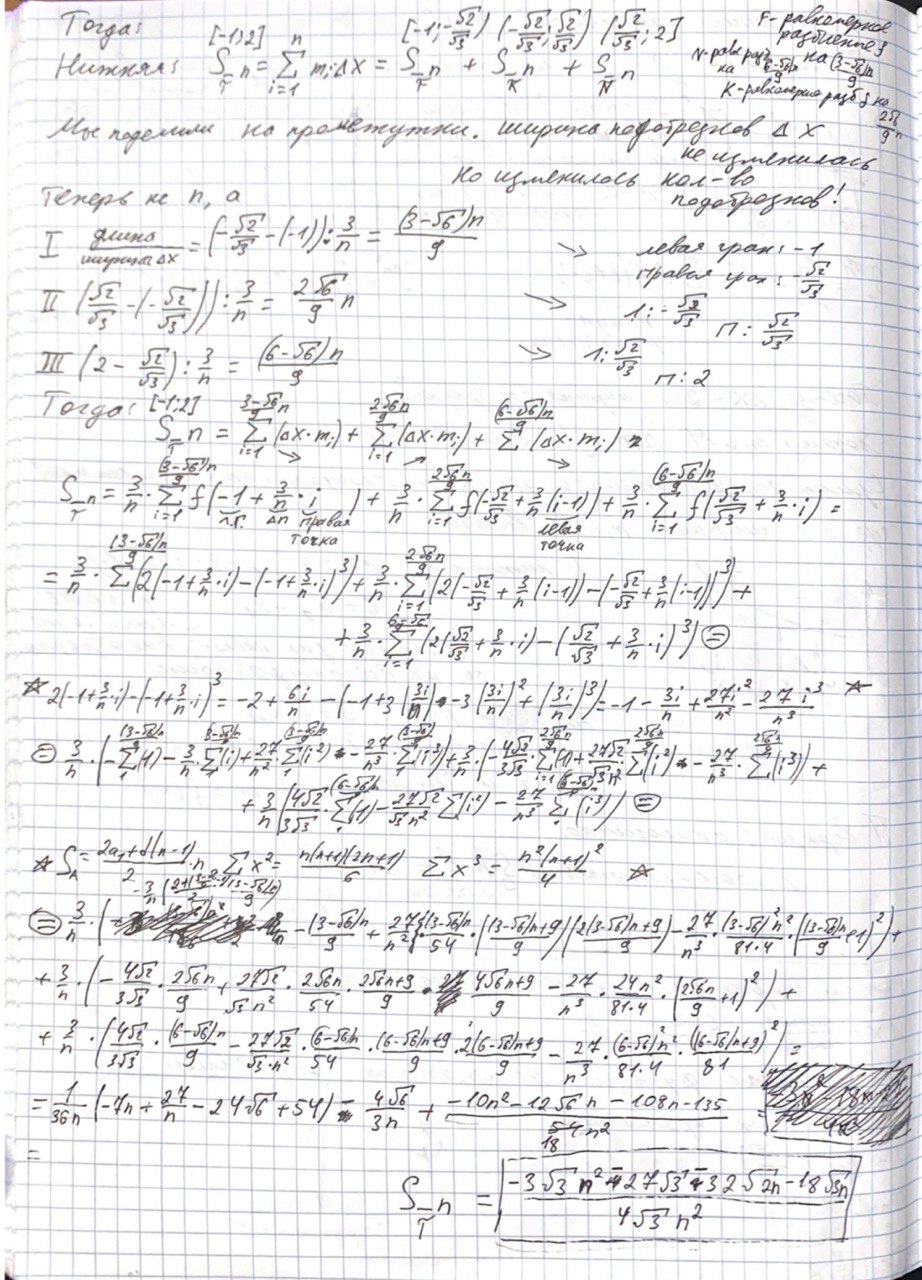 Тогда: [-1;2] [-1;-√2/√3) (-√2/√3;√2/√3) (√2/√3;2]
Нижняя: S_n T = Σ i=1 n mᵢ·Δx = S_n F + S_n K + S_n N
F - равномерное разбиение f на (3-√6)n/9
N-равн разб на (6-√6)n/9
K-равномерное разб f на 2√6/9 n
Мы поделили на промежутки. ширина подотрезков Δx
не изменилась
Но изменилось кол-во
подотрезков!
Теперь не n, а
I длина/ширина Δx = (-√2/√3 - (-1)) : 3/n = (3-√6)n/9 → левая гран: -1
Правая гран: -√2/√3
II (√2/√3 - (-√2/√3)) : 3/n = 2√6/9 n → л: -√2/√3 П: √2/√3
III (2 - √2/√3) : 3/n = (6-√6)n/9 → л: √2/√3
П: 2
Тогда: [-1;2]
S_n T = Σ i=1 (3-√6)/9 n (Δx·mᵢ) + Σ i=1 2√6n/9 (Δx·mᵢ) + Σ i=1 (6-√6)n/9 (Δx·mᵢ)
S_n T = 3/n · Σ i=1 (3-√6)n/9 f(-1 + 3/n · i) + 3/n · Σ i=1 2√6n/9 f(-√2/√3 + 3/n (i-1)) + 3/n · Σ i=1 (6-√6)n/9 f(√2/√3 + 3/n · i) =
Л.Г. Δn Правая точка левая точка
= 3/n · Σ (3-√6)n/9 (2(-1+3/n·i) - (-1+3/n·i)³) + 3/n · Σ i=1 2√6n/9 (2(-√2/√3 + 3/n (i-1)) - (-√2/√3 + 3/n (i-1))³) +
+ 3/n · Σ i=1 6-√6/9 (2(√2/√3 + 3/n · i) - (√2/√3 + 3/n · i)³) =
☆ 2(-1+3/n·i) - (-1+3/n·i)³ = -2 + 6i/n - (-1+3(3i/n) - 3(3i/n)² + (3i/n)³) = -1 - 3i/n + 27i²/n² - 27i³/n³ ☆
= 3/n · (-Σ(1) - 3/n Σ(i) + 27/n² · Σ(i²) - 27/n³ · Σ(i³)) + 3/n · (-4√2/3√3 · Σ i=1 2√6n/9 (1) + 27√2/√3n² · Σ(i²) - 27/n³ · Σ(i³)) +
+ 3/n (4√2/3√3 · Σ (6-√6)n/9 (1) - 27√2/√3n² Σ(i²) - 27/n³ Σ(i³)) =
☆ Sₙ = 2a₁+d(n-1)/2 · n Σx² = n(n+1)(2n+1)/6 Σx³ = n²(n+1)²/4 ☆
= 3/n · (- (3-√6)n/9 + 27/n² · (3-√6)n/54 · ((3-√6)n+9/9)(2(3-√6)n+9/9) - 27/n³ · (3-√6)²n²/81·4 · ((3-√6)n/9 + 1)²) +
+ 3/n · (-4√2/3√3 · 2√6n/9 + 27√2/√3n² · 2√6n/54 · 2√6n+9/9 · 4√6n+9/9 - 27/n³ · 24n²/81·4 · (2√6n/9 + 1)²) +
+ 3/n · (4√2/3√3 · (6-√6)n/9 - 27√2/√3·n² · (6-√6)n/54 · (6-√6)n+9/9 · 2(6-√6)n+9/9 - 27/n³ · (6-√6)²n²/81·4 · ((6-√6)n+9)²/81) =
= 1/36n (-7n + 27/n - 24√6 + 54) - 4√6/3n + -10n² - 12√6n - 108n - 135/18n²
=
S_n T = -3√3n² + 27√3 - 32√2n - 18√3n / 4√3n²